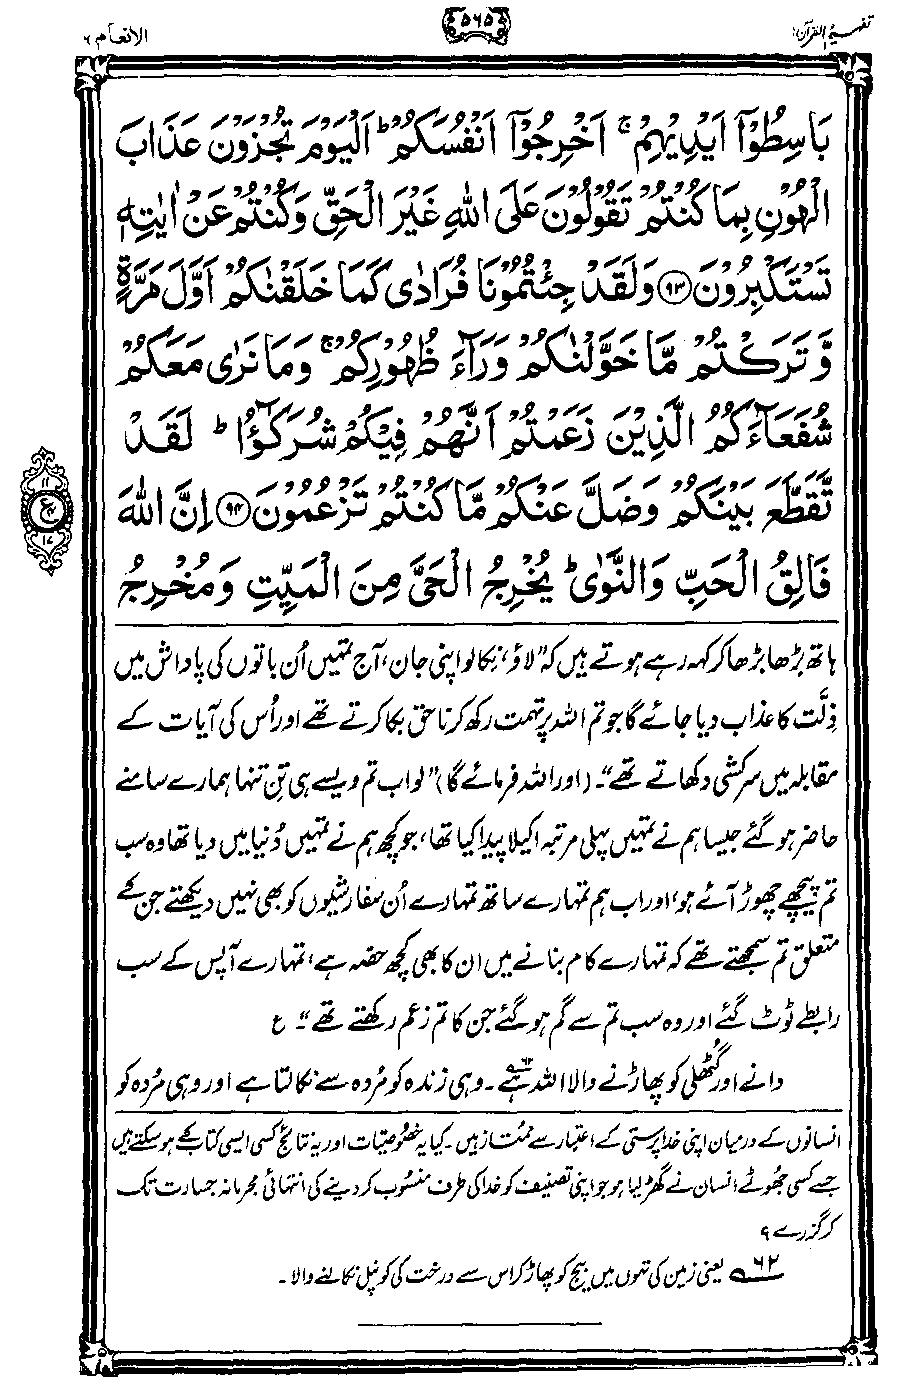 تفہیم القرآن ۱
۵۶۵
الانعام ۶
بَاسِطُوْٓا اَيْدِيْهِمْ ۚ اَخْرِجُوْٓا اَنْفُسَكُمْ ؕ اَلْيَوْمَ تُجْزَوْنَ عَذَابَ
الْهُوْنِ بِمَا كُنْتُمْ تَقُوْلُوْنَ عَلَى اللّٰهِ غَيْرَ الْحَقِّ وَكُنْتُمْ عَنْ اٰيٰتِهٖ
تَسْتَكْبِرُوْنَ ﴿۹۳﴾ وَلَقَدْ جِئْتُمُوْنَا فُرَادٰى كَمَا خَلَقْنٰكُمْ اَوَّلَ مَرَّةٍ
وَّ تَرَكْتُمْ مَّا خَوَّلْنٰكُمْ وَرَآءَ ظُهُوْرِكُمْ ۚ وَمَا نَرٰى مَعَكُمْ
شُفَعَآءَكُمُ الَّذِيْنَ زَعَمْتُمْ اَنَّهُمْ فِيْكُمْ شُرَكٰٓؤُا ؕ لَقَدْ
تَّقَطَّعَ بَيْنَكُمْ وَضَلَّ عَنْكُمْ مَّا كُنْتُمْ تَزْعُمُوْنَ ﴿۹۴﴾ اِنَّ اللّٰهَ
فَالِقُ الْحَبِّ وَالنَّوٰى ؕ يُخْرِجُ الْحَىَّ مِنَ الْمَيِّتِ وَمُخْرِجُ
۱۱
ع
۱۷
ہاتھ بڑھا بڑھا کر کہہ رہے ہوتے ہیں کہ ”لاؤ، نکالو اپنی جان، آج تمہیں اُن باتوں کی پاداش میں
ذِلّت کا عذاب دیا جائے گا جو تم اللہ پر تہمت رکھ کر ناحق بکا کرتے تھے اور اُس کی آیات کے
مقابلہ میں سرکشی دکھاتے تھے“۔ (اور اللہ فرمائے گا) ”لو اب تم ویسے ہی تنِ تنہا ہمارے سامنے
حاضر ہو گئے جیسا ہم نے تمہیں پہلی مرتبہ اکیلا پیدا کیا تھا، جو کچھ ہم نے تمہیں دُنیا میں دیا تھا وہ سب
تم پیچھے چھوڑ آئے ہو، اور اب ہم تمہارے ساتھ تمہارے اُن سفارشیوں کو بھی نہیں دیکھتے جن کے
متعلق تم سمجھتے تھے کہ تمہارے کام بنانے میں ان کا بھی کچھ حصّہ ہے، تمہارے آپس کے سب
رابطے ٹوٹ گئے اور وہ سب تم سے گم ہو گئے جن کا تم زعم رکھتے تھے“۔ ع
دانے اور گٹھلی کو پھاڑنے والا اللہ ہے۶۲۔ وہی زندہ کو مُردہ سے نکالتا ہے اور وہی مُردہ کو
انسانوں کے درمیان اپنی خدا پرستی کے اعتبار سے ممتاز ہیں۔ کیا یہ خصُوصیات اور یہ نتائج کسی ایسی کتاب کے ہو سکتے ہیں
جسے کسی جھُوٹے انسان نے گھڑ لیا ہو جو اپنی تصنیف کو خدا کی طرف منسُوب کر دینے کی انتہائی مجرمانہ جسارت تک
کر گزرے؟
۶۲ یعنی زمین کی تہوں میں بیج کو پھاڑ کر اس سے درخت کی کونپل نکالنے والا۔